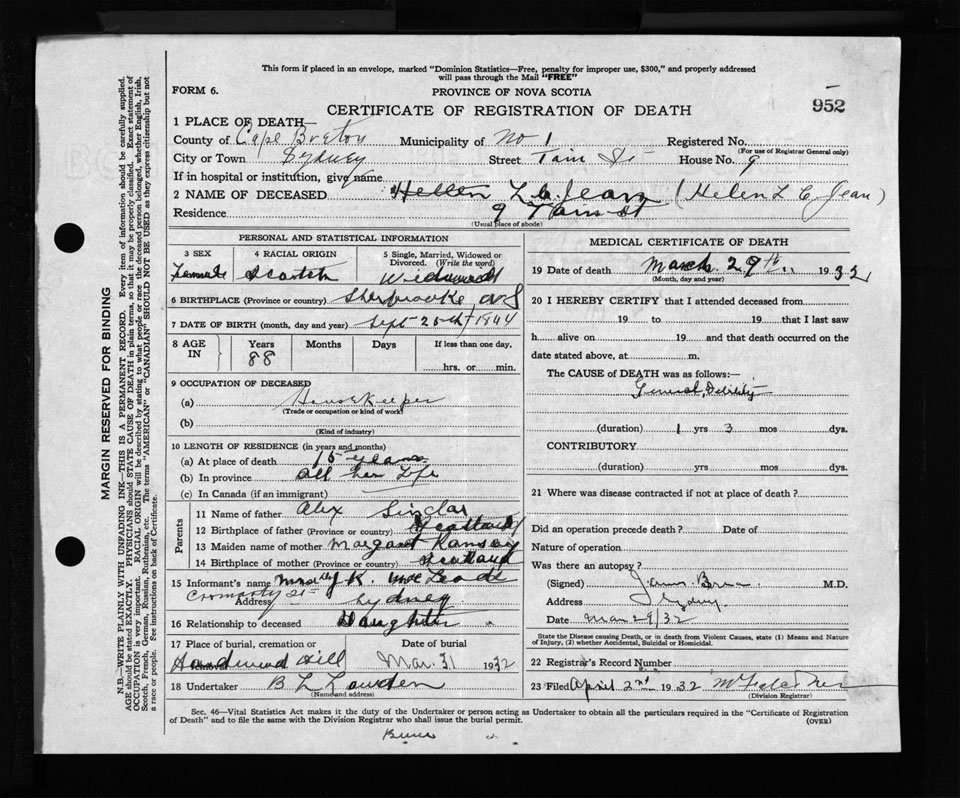 This form if placed in an envelope, marked "Dominion Statistics—Free, penalty for improper use, $300," and properly addressed
will pass through the Mail "FREE"
FORM 6.
PROVINCE OF NOVA SCOTIA
952
CERTIFICATE OF REGISTRATION OF DEATH
1 PLACE OF DEATH—
County of Cape Breton Municipality of No 1 Registered No.
(For use of Registrar General only)
City or Town Sydney Street Tain St House No. 9
If in hospital or institution, give name
2 NAME OF DECEASED Hellen L. C. Jean (Helen L C Jean)
Residence 9 Tain St
(Usual place of abode)
PERSONAL AND STATISTICAL INFORMATION
3 SEX
Female
4 RACIAL ORIGIN
Scotch
5 Single, Married, Widowed or
Divorced. (Write the word)
Widowed
6 BIRTHPLACE (Province or country) Sherbrooke NS
7 DATE OF BIRTH (month, day and year) Sept 25th 1844
8 AGE
IN
Years
88
Months
Days
If less than one day,
hrs. or min.
9 OCCUPATION OF DECEASED
(a) Housekeeper
(Trade or occupation or kind of work)
(b)
(Kind of industry)
10 LENGTH OF RESIDENCE (in years and months)
(a) At place of death 15 years
(b) In province All her Life
(c) In Canada (if an immigrant)
Parents
11 Name of father Alex Sinclar
12 Birthplace of father (Province or country) Scotland
13 Maiden name of mother Margaret Ramsay
14 Birthplace of mother (Province or country) Scotland
15 Informant's name Mrs K. McLeod
Cromarty St
Address Sydney
16 Relationship to deceased Daughter
17 Place of burial, cremation or
removal
Hardwood Hill
Date of burial
Mar. 31 1932
18 Undertaker B L
(Name and address)
MEDICAL CERTIFICATE OF DEATH
19 Date of death March 29th 1932
(Month, day and year)
20 I HEREBY CERTIFY that I attended deceased from
19 to 19 that I last saw
h alive on 19 and that death occurred on the
date stated above, at m.
The CAUSE of DEATH was as follows:—
General Debility
(duration) 1 yrs 3 mos dys.
CONTRIBUTORY
(duration) yrs mos dys.
21 Where was disease contracted if not at place of death?
Did an operation precede death? Date of
Nature of operation
Was there an autopsy?
(Signed) M.D.
Address Sydney
Date Mar 29/32
State the Disease causing Death, or in death from Violent Causes, state (1) Means and Nature
of Injury, (2) whether Accidental, Suicidal or Homicidal.
22 Registrar's Record Number
23 Filed April 2nd 1932
(Division Registrar)
Sec. 46—Vital Statistics Act makes it the duty of the Undertaker or person acting as Undertaker to obtain all the particulars required in the "Certificate of Registration
of Death" and to file the same with the Division Registrar who shall issue the burial permit.
(OVER)
MARGIN RESERVED FOR BINDING
N.B.—WRITE PLAINLY WITH UNFADING INK—THIS IS A PERMANENT RECORD. Every item of information should be carefully supplied.
AGE should be stated EXACTLY. PHYSICIANS should STATE CAUSE OF DEATH in plain terms, so that it may be properly classified. Exact statement of
OCCUPATION is very important. RACIAL ORIGIN will be described by stating to what people or race the deceased person belonged, whether English, Irish,
Scotch, French, German, Russian, Ruthenian, etc. The terms "AMERICAN" or "CANADIAN" SHOULD NOT BE USED as they express citizenship but not
a race or people. See instructions on back of Certificate.